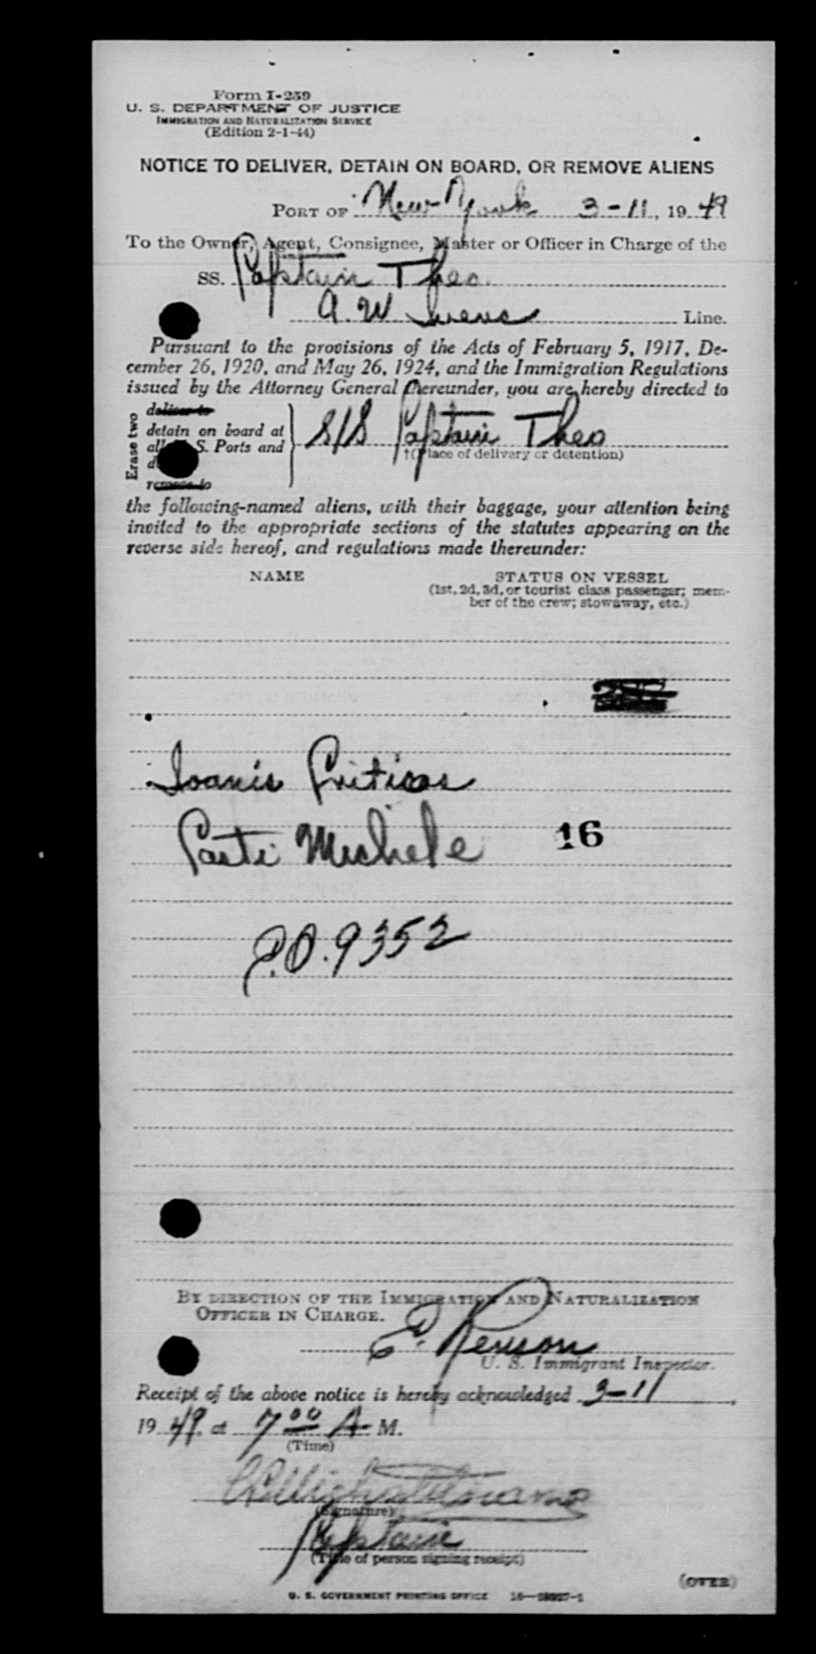 Form I-259
U. S. DEPARTMENT OF JUSTICE
IMMIGRATION AND NATURALIZATION SERVICE
(Edition 2-1-44)
NOTICE TO DELIVER, DETAIN ON BOARD, OR REMOVE ALIENS
PORT OF New York 3-11, 19 49
To the Owner, Agent, Consignee, Master or Officer in Charge of the
SS. Captain Theo.
A. W. Line.
Pursuant to the provisions of the Acts of February 5, 1917, De-
cember 26, 1920, and May 26, 1924, and the Immigration Regulations
issued by the Attorney General thereunder, you are hereby directed to
Erase two
deliver to
detain on board at
all U. S. Ports and
remove to
S/S Captain Theo
†(Place of delivery or detention)
the following-named aliens, with their baggage, your attention being
invited to the appropriate sections of the statutes appearing on the
reverse side hereof, and regulations made thereunder:
NAME STATUS ON VESSEL
(1st, 2d, 3d, or tourist class passenger; mem-
ber of the crew; stowaway, etc.)
Ioanis Criticos
Michele 16
P.O. 9352
BY DIRECTION OF THE IMMIGRATION AND NATURALIZATION
OFFICER IN CHARGE.
E. Renson
U. S. Immigrant Inspector.
Receipt of the above notice is hereby acknowledged 3-11,
19 49 at 7 00 A M.
(Time)
(Signature)
Captain
(Title of person signing receipt)
(OVER)
U. S. GOVERNMENT PRINTING OFFICE